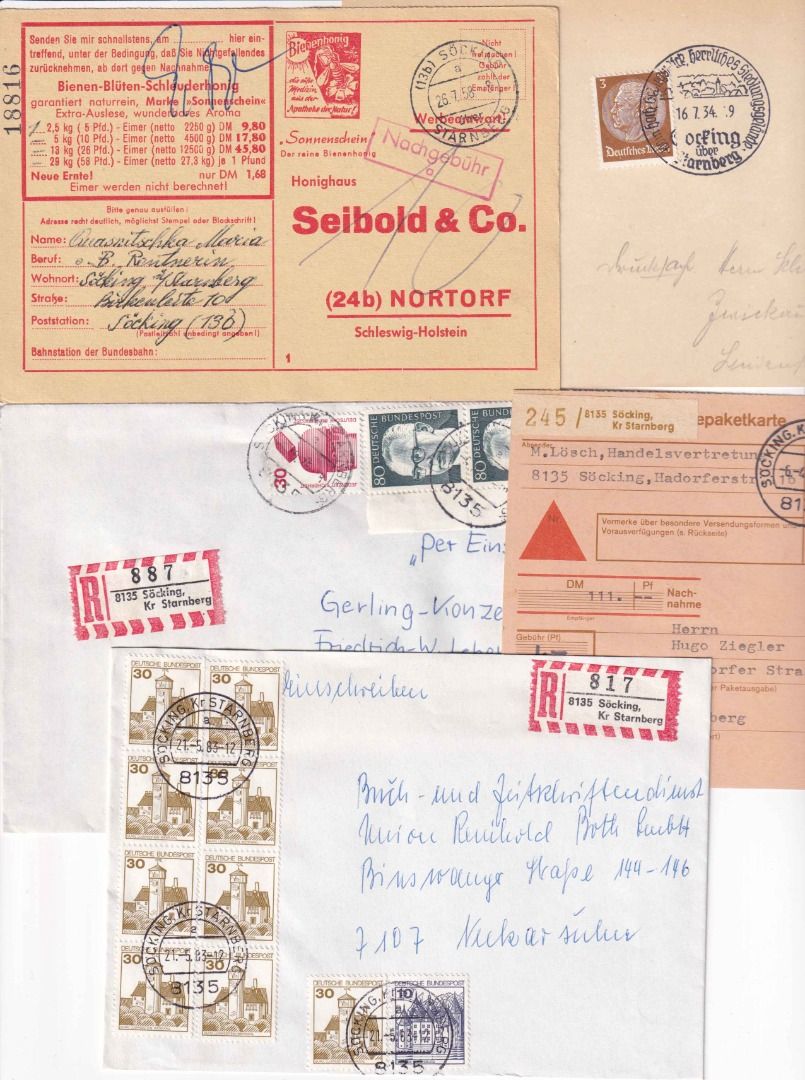 18816
Senden Sie mir schnellstens, am hier ein-
treffend, unter der Bedingung, daß Sie Nichtgefallendes
zurücknehmen, ab dort gegen Nachnahme
Bienen-Blüten-Schleuderhonig
garantiert naturrein, Marke „Sonnenschein"
Extra-Auslese, wundervolles Aroma
2,5 kg ( 5 Pfd.) - Eimer (netto 2250 g) DM 9,80
5 kg (10 Pfd.) - Eimer (netto 4500 g) DM 17,80
13 kg (26 Pfd.) - Eimer (netto 1250 g) DM 45,80
29 kg (58 Pfd.) - Eimer (netto 27,3 kg) je 1 Pfund
Neue Ernte! nur DM 1,68
Eimer werden nicht berechnet!
Bitte genau ausfüllen!
Adresse recht deutlich, möglichst Stempel oder Blockschrift!
Name: Quasnitschka Maria
Beruf: o. B. Rentnerin
Wohnort: Söcking n/Starnberg
Straße: Birkenleite 10
Poststation: Söcking (13b)
(Postleitzahl unbedingt angeben!)
Bahnstation der Bundesbahn:
Bienenhonig
die süße
Medizin
aus der
Apotheke der Natur!
„Sonnenschein"
Der reine Bienenhonig
Nicht
freimachen!
Gebühr
zahlt der
Empfänger
Werbeantwort
(13b) SÖCKING
a
26.7.56
über
STARNBERG
Nachgebühr
Honighaus
Seibold & Co.
(24b) NORTORF
Schleswig-Holstein
1
3
Deutsches Reich
herrliches Siedlungsgelände
16 7.34. 19
Söcking
über
Starnberg
Drucksache Herrn
30
DEUTSCHE BUNDESPOST
80 DEUTSCHE BUNDESPOST
80 DEUTSCHE
8135
R
887
8135 Söcking,
Kr Starnberg
„Per Eins
Gerling-Konze
Friedrich-W.
245 / 8135 Söcking,
Kr Starnberg
epaketkarte
SÖCKING, Kr
81
Absender
M.Lösch, Handelsvertretung
8135 Söcking, Hadorferstr
Nr.
Vermerke über besondere Versendungsformen und
Vorausverfügungen (s. Rückseite)
DM Pf
111. -- Nach-
nahme
Empfänger
Gebühr (Pf)
Herrn
Hugo Ziegler
dorfer Stra
r Paketausgabe)
berg
Einschreiben
R
817
8135 Söcking,
Kr Starnberg
DEUTSCHE BUNDESPOST
30
DEUTSCHE BUNDESPOST
30
SÖCKING, Kr STARNBERG
a
21.-5.83-12
8135
DEUTSCHE BUNDESPOST
30
DEUTSCHE BUNDESPOST
30
DEUTSCHE BUNDESPOST
30
DEUTSCHE BUNDESPOST
30
SÖCKING, Kr STARNBERG
a
21.-5.83-12
8135
30
30
Buch- und Zeitschriftendienst
Union Reinhold Both GmbH
Binswanger Straße 144-146
7107 Neckarsulm
30
DEUTSCHE BUNDESPOST
10
DEUTSCHE BUNDESPOST
SÖCKING, Kr STARNBERG
a
21.-5.83-12
8135